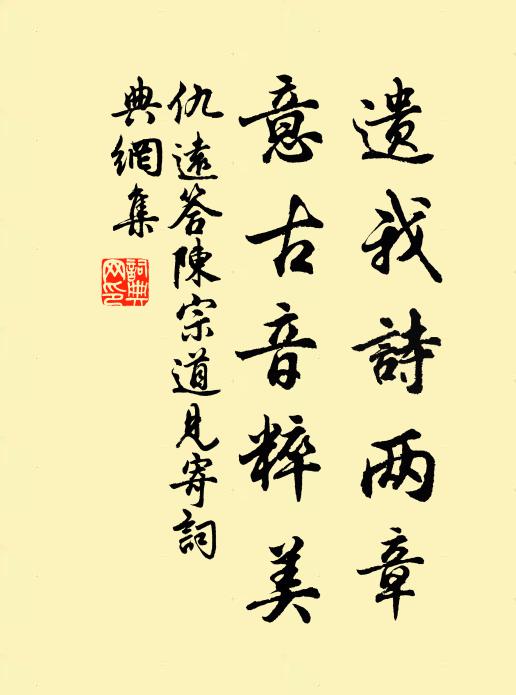 遗我詩两章
意古音粹美
仇遠答陳宗道見寄詞
典網集
詞典网印